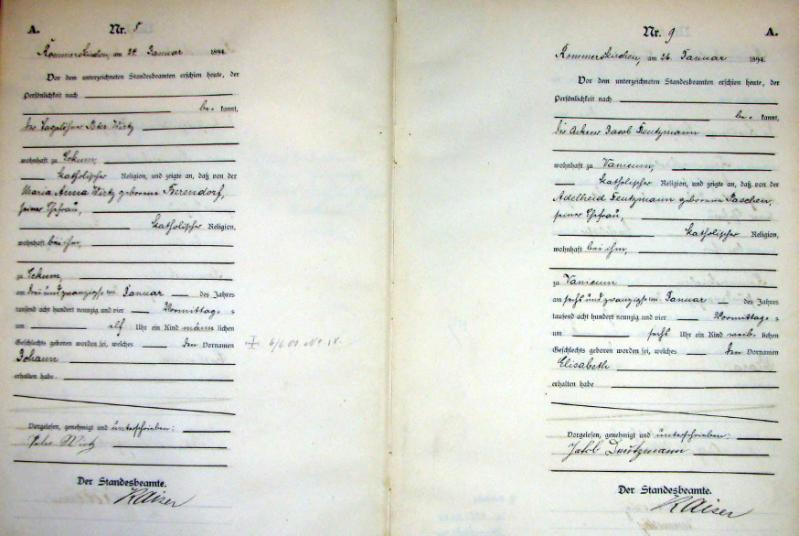 A. Nr. 5
Rommerskirchen, am 24. Januar 1894.
Vor dem unterzeichneten Standesbeamten erschien heute, der
Persönlichkeit nach
be= kannt,
der Tagelöhner Peter Wirtz
wohnhaft zu Eckum,
katholischer Religion, und zeigte an, daß von der
Maria Anna Wirtz geborene
seiner Ehefrau,
katholischer Religion,
wohnhaft bei ihm,
zu Eckum,
am drei und zwanzigsten Januar des Jahres
tausend acht hundert neunzig und vier Vormittags
um elf Uhr ein Kind männlichen
Geschlechts geboren worden sei, welches den Vornamen
Johann
erhalten habe
Vorgelesen, genehmigt und unterschrieben:
Peter Wirtz
Der Standesbeamte.
Kaiser
Nr. 9 A.
Rommerskirchen, am 26. Januar 1894.
Vor dem unterzeichneten Standesbeamten erschien heute, der
Persönlichkeit nach
be= kannt,
der Ackerer Jacob
wohnhaft zu Vanicum,
katholischer Religion, und zeigte an, daß von der
Adelheid geborene Paschen,
seiner Ehefrau,
katholischer Religion,
wohnhaft bei ihm,
zu Vanicum
am sechs und zwanzigsten Januar des Jahres
tausend acht hundert neunzig und vier Vormittags
um sechs Uhr ein Kind weiblichen
Geschlechts geboren worden sei, welches den Vornamen
Elisabeth
erhalten habe
Vorgelesen, genehmigt und unterschrieben:
Jakob
Der Standesbeamte.
Kaiser